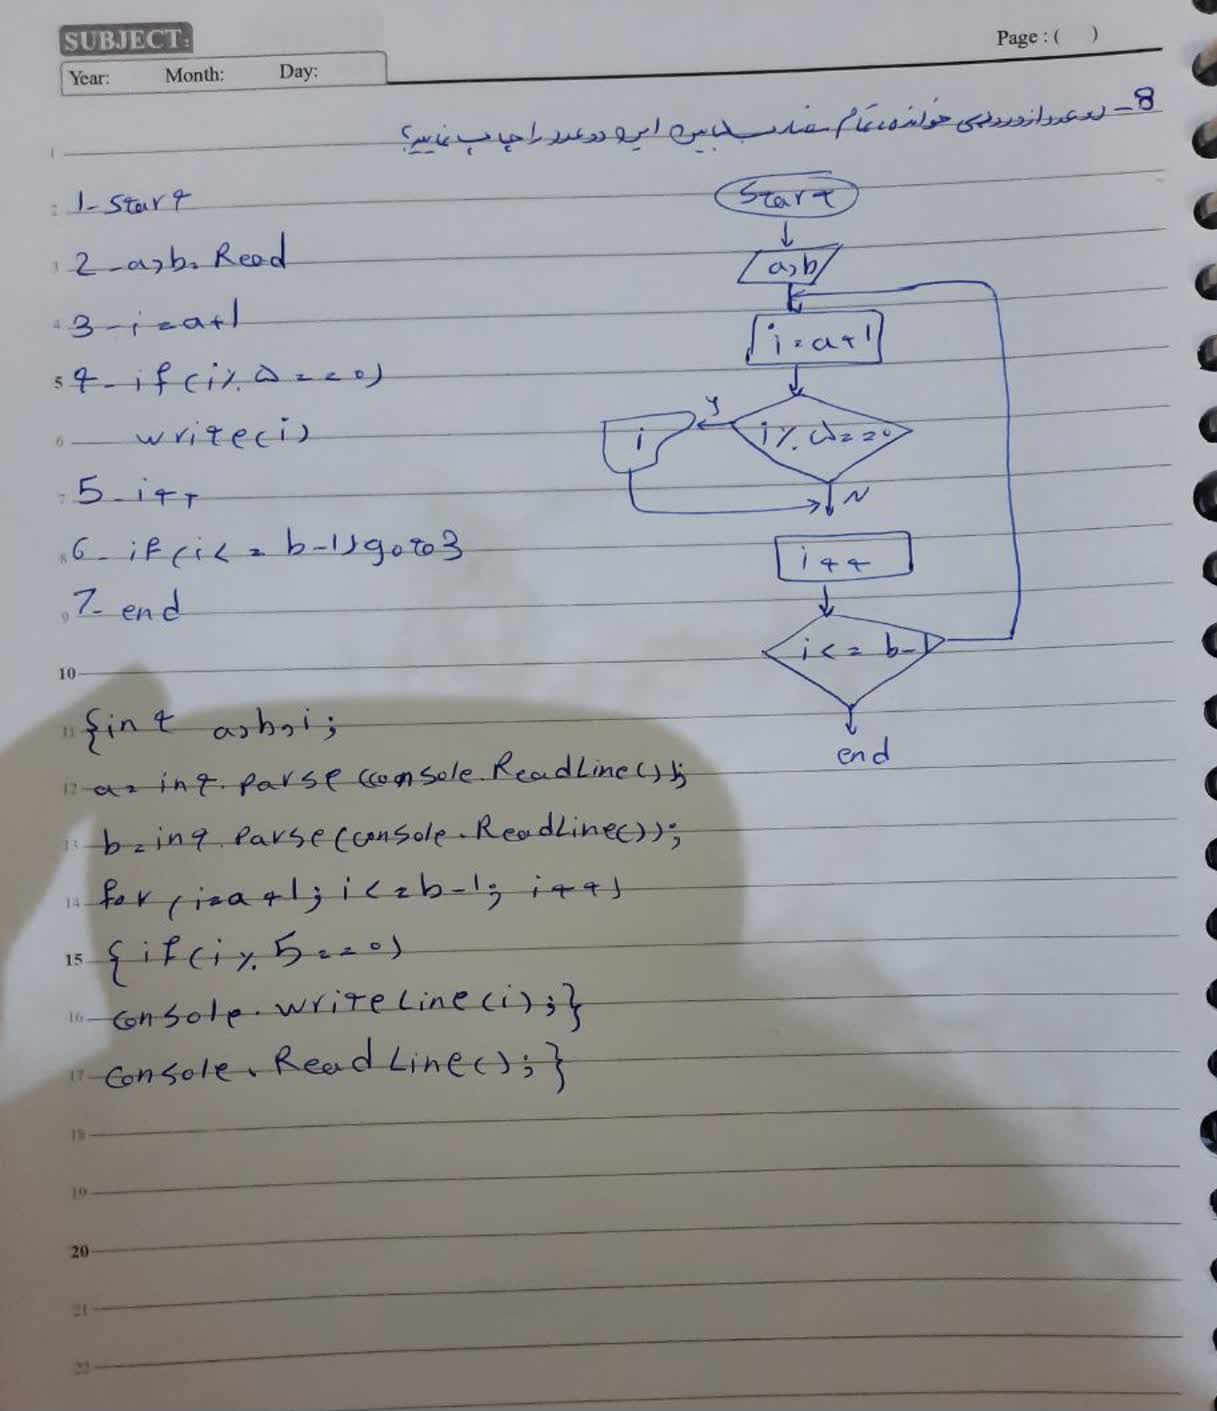 SUBJECT:
Page : ( )
Year: Month: Day:
8- دو عدد از ورودی خوانده، تمام مضارب ۵ مابین این دو عدد را چاپ نمایید؟
1- Start
2- a,b. Read
3- i=a+1
4- if(i%۵==0)
write(i)
5- i++
6- if(i<=b-1)goto3
7- end
Start
a,b
i=a+1
i%۵==0
y
i
N
i++
i<=b-1
end
{int a,b,i;
a=int.parse(console.ReadLine();
b=int.Parse(console.ReadLine());
for(i=a+1;i<=b-1;i++)
{if(i%5==0)
console.writeLine(i);}
console.ReadLine();}
1
2
3
4
5
6
7
8
9
10
11
12
13
14
15
16
17
18
19
20
21
22